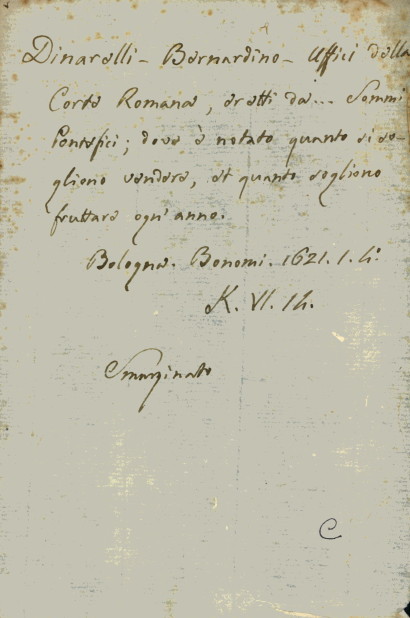 Dinarelli - Bernardino - Uffici della
Corte Romana, eretti da... Sommi
Pontefici; dove è notato quanto si so-
gliono vendere, et quanto sogliono
fruttare ogn' anno.
Bologna. Bonomi. 1621. 1. 4°
K. VI. 14.
Smarginato
C